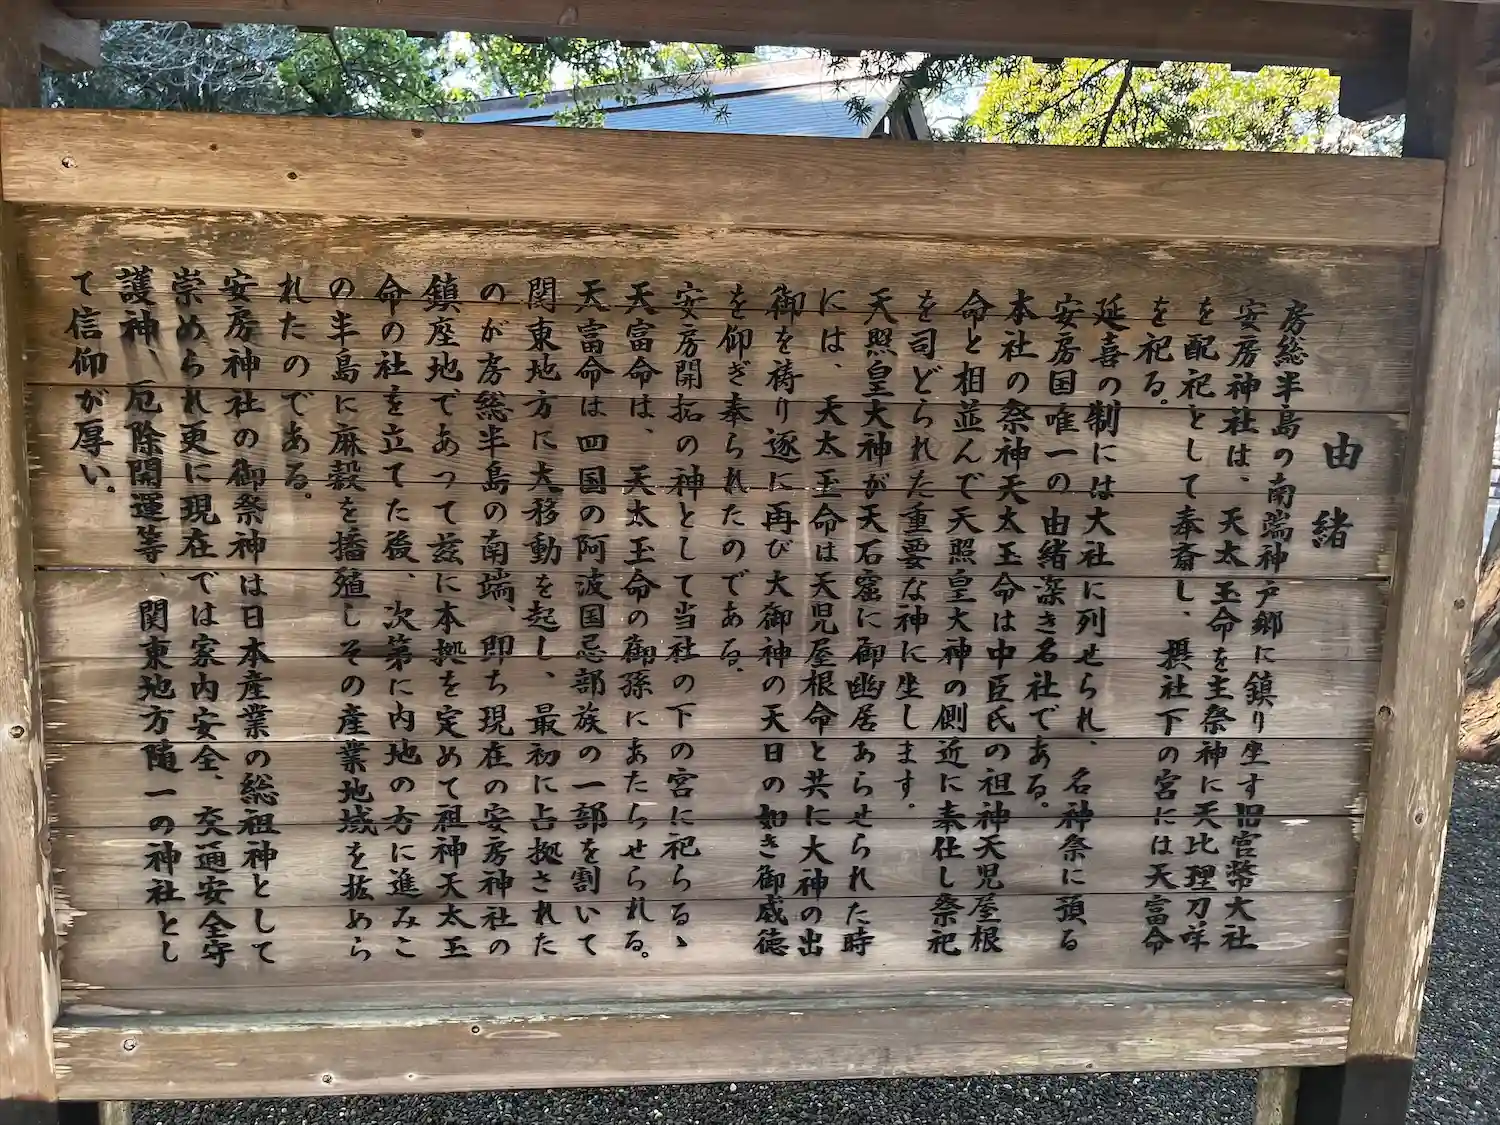 由緒
房総半島の南端神戸郷に鎮り坐す旧官幣大社
安房神社は、天太玉命を主祭神に天比理刀咩
を配祀として奉斎し、摂社下の宮には天富命
を祀る。
延喜の制には大社に列せられ、名神祭に預る
安房国唯一の由緒深き名社である。
本社の祭神天太玉命は中臣氏の祖神天児屋根
命と相並んで天照皇大神の側近に奉仕し祭祀
を司どられた重要な神に坐します。
天照皇大神が天石窟に御幽居あらせられた時
には、天太玉命は天児屋根命と共に大神の出
御を祷り逐に再び大御神の天日の如き御威徳
を仰ぎ奉られたのである。
安房開拓の神として当社の下の宮に祀らるゝ
天富命は、天太玉命の御孫にあたらせられる。
天富命は四国の阿波国忌部族の一部を割いて
関東地方に大移動を起し、最初に占拠された
のが房総半島の南端、即ち現在の安房神社の
鎮座地であつて茲に本拠を定めて祖神天太玉
命の社を立てた後、次第に内地の方に進みこ
の半島に麻穀を播殖しその産業地域を拡めら
れたのである。
安房神社の御祭神は日本産業の総祖神として
崇められ更に現在では家内安全、交通安全守
護神、厄除開運等、関東地方随一の神社とし
て信仰が厚い。